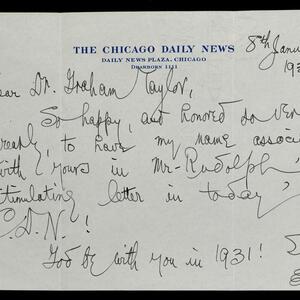 THE CHICAGO DAILY NEWS
DAILY NEWS PLAZA, CHICAGO
DEARBORN 1111
8th Janu
193
ear Dr. Graham Taylor,
So happy, and honored so ver
greatly, to have my name associ
with yours in Mr. Rudolph'
stimulating letter in today'
C.D.N.!
God be with you in 1931!